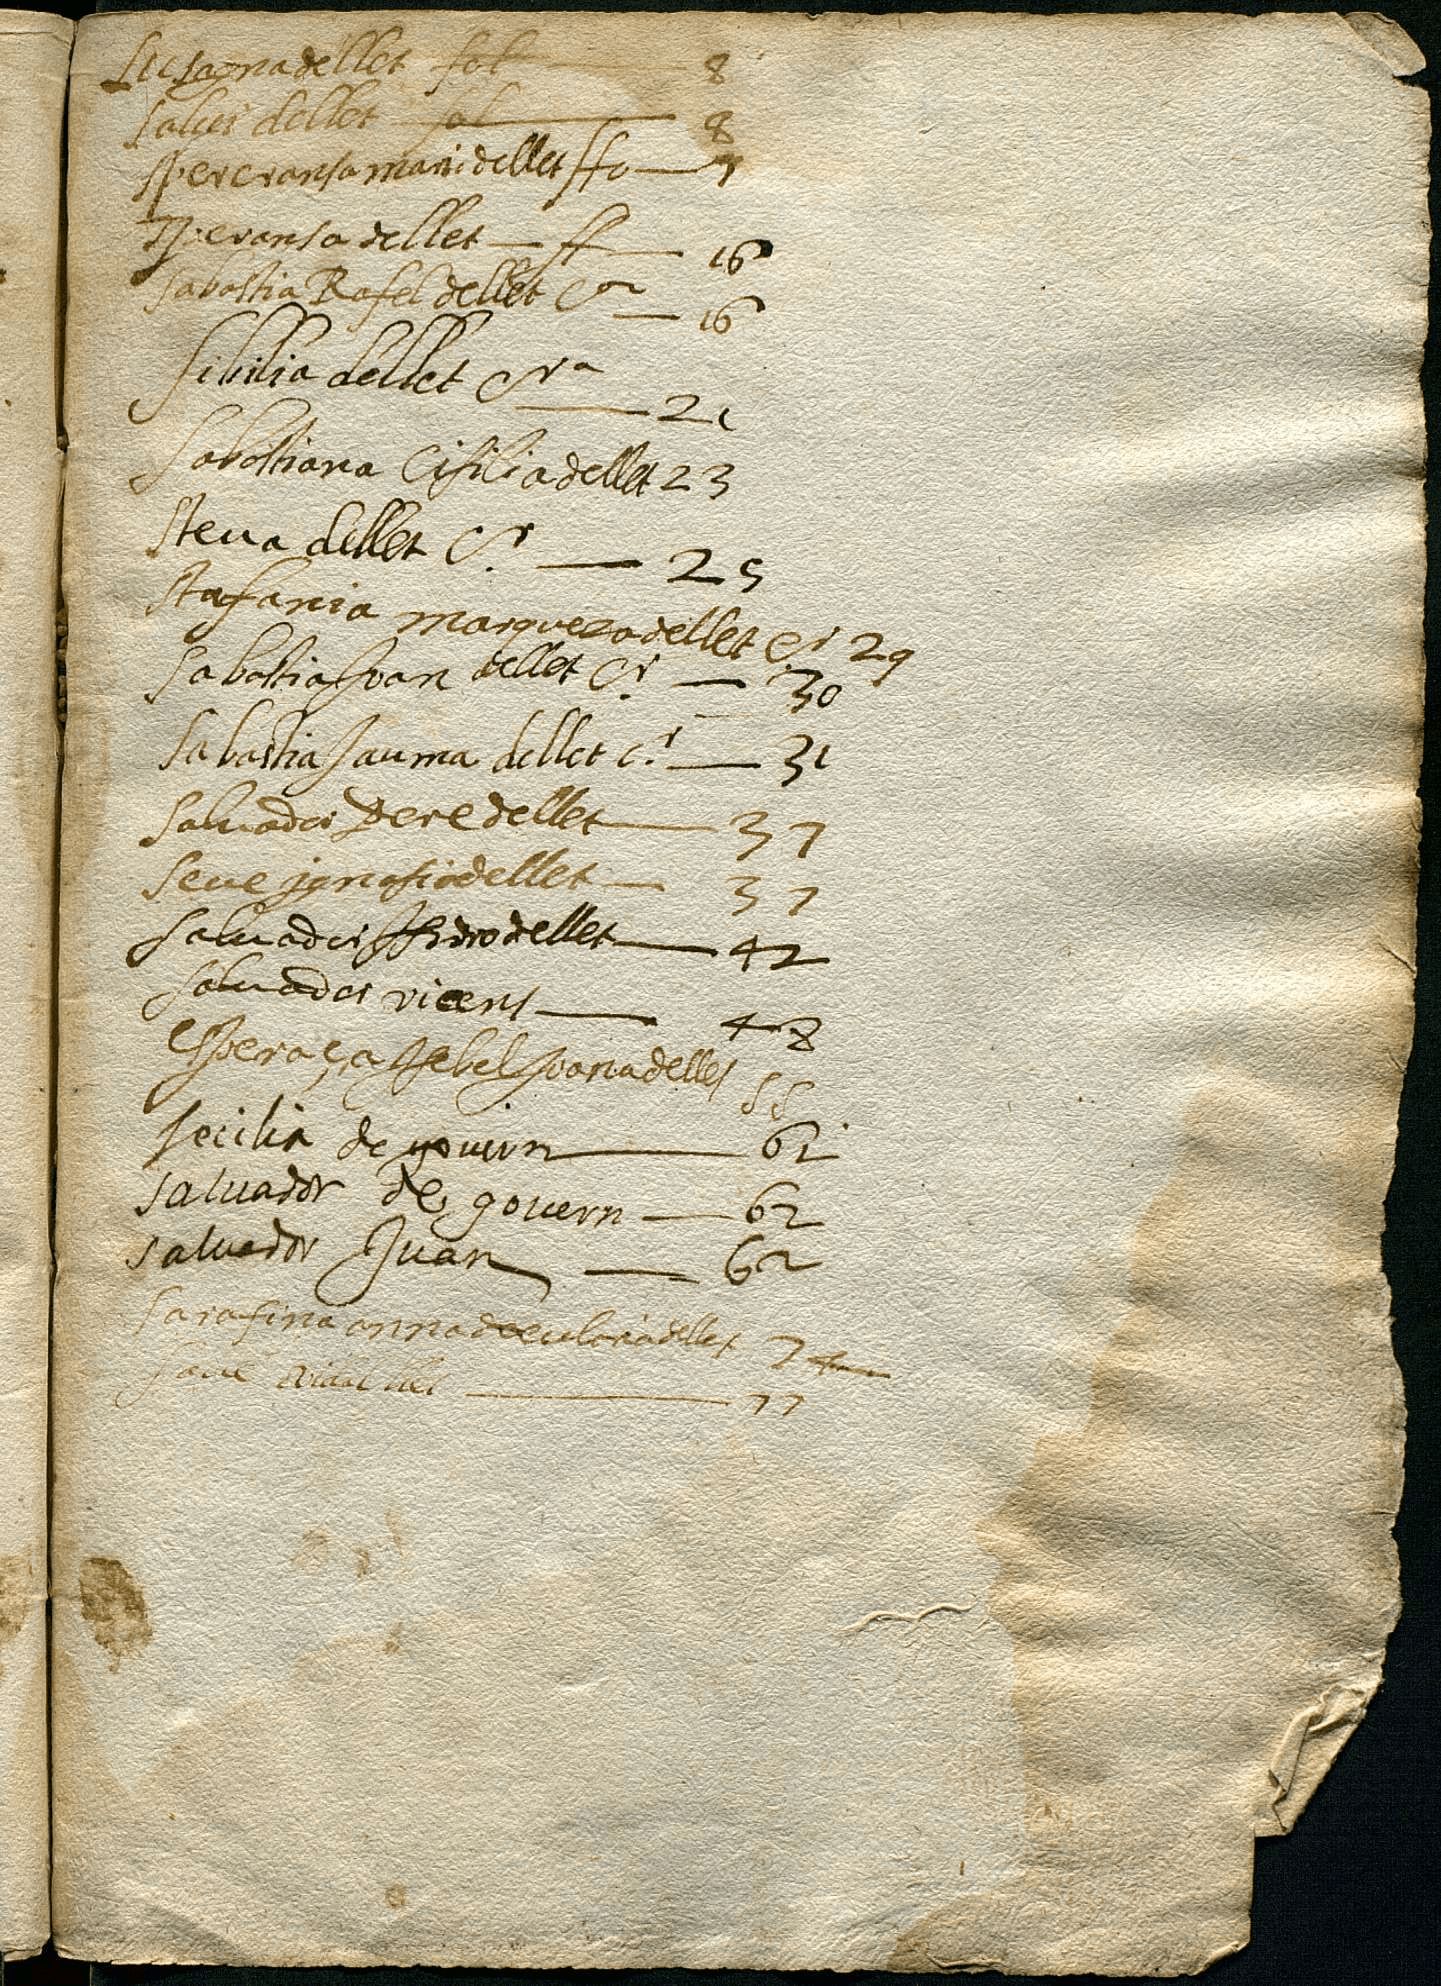 dellet fol 8
dellet fol 8
Spereransa mari dellet ffo 7
Speransa dellet ff 16
Sabastia Rafel dellet Cra 16
Sibilia dellet Cra 21
Sabastiana Cisilia dellet 23
Steua dellet Cr. 25
Stafania marqueza dellet Cr 29
Sabastia Juan dellet Cr. 30
Sabastia Jauma dellet cr. 31
Saluador Pere dellet 37
Seue ignasio dellet 37
Saluador Isidro dellet 42
Saluador vicens 48
Esperaça Isebel Juana dellet 55
Secilia de govern 61
Saluador de gouern 62
Saluador Juan 62
Sarafina anna de eularia dellet 74
77